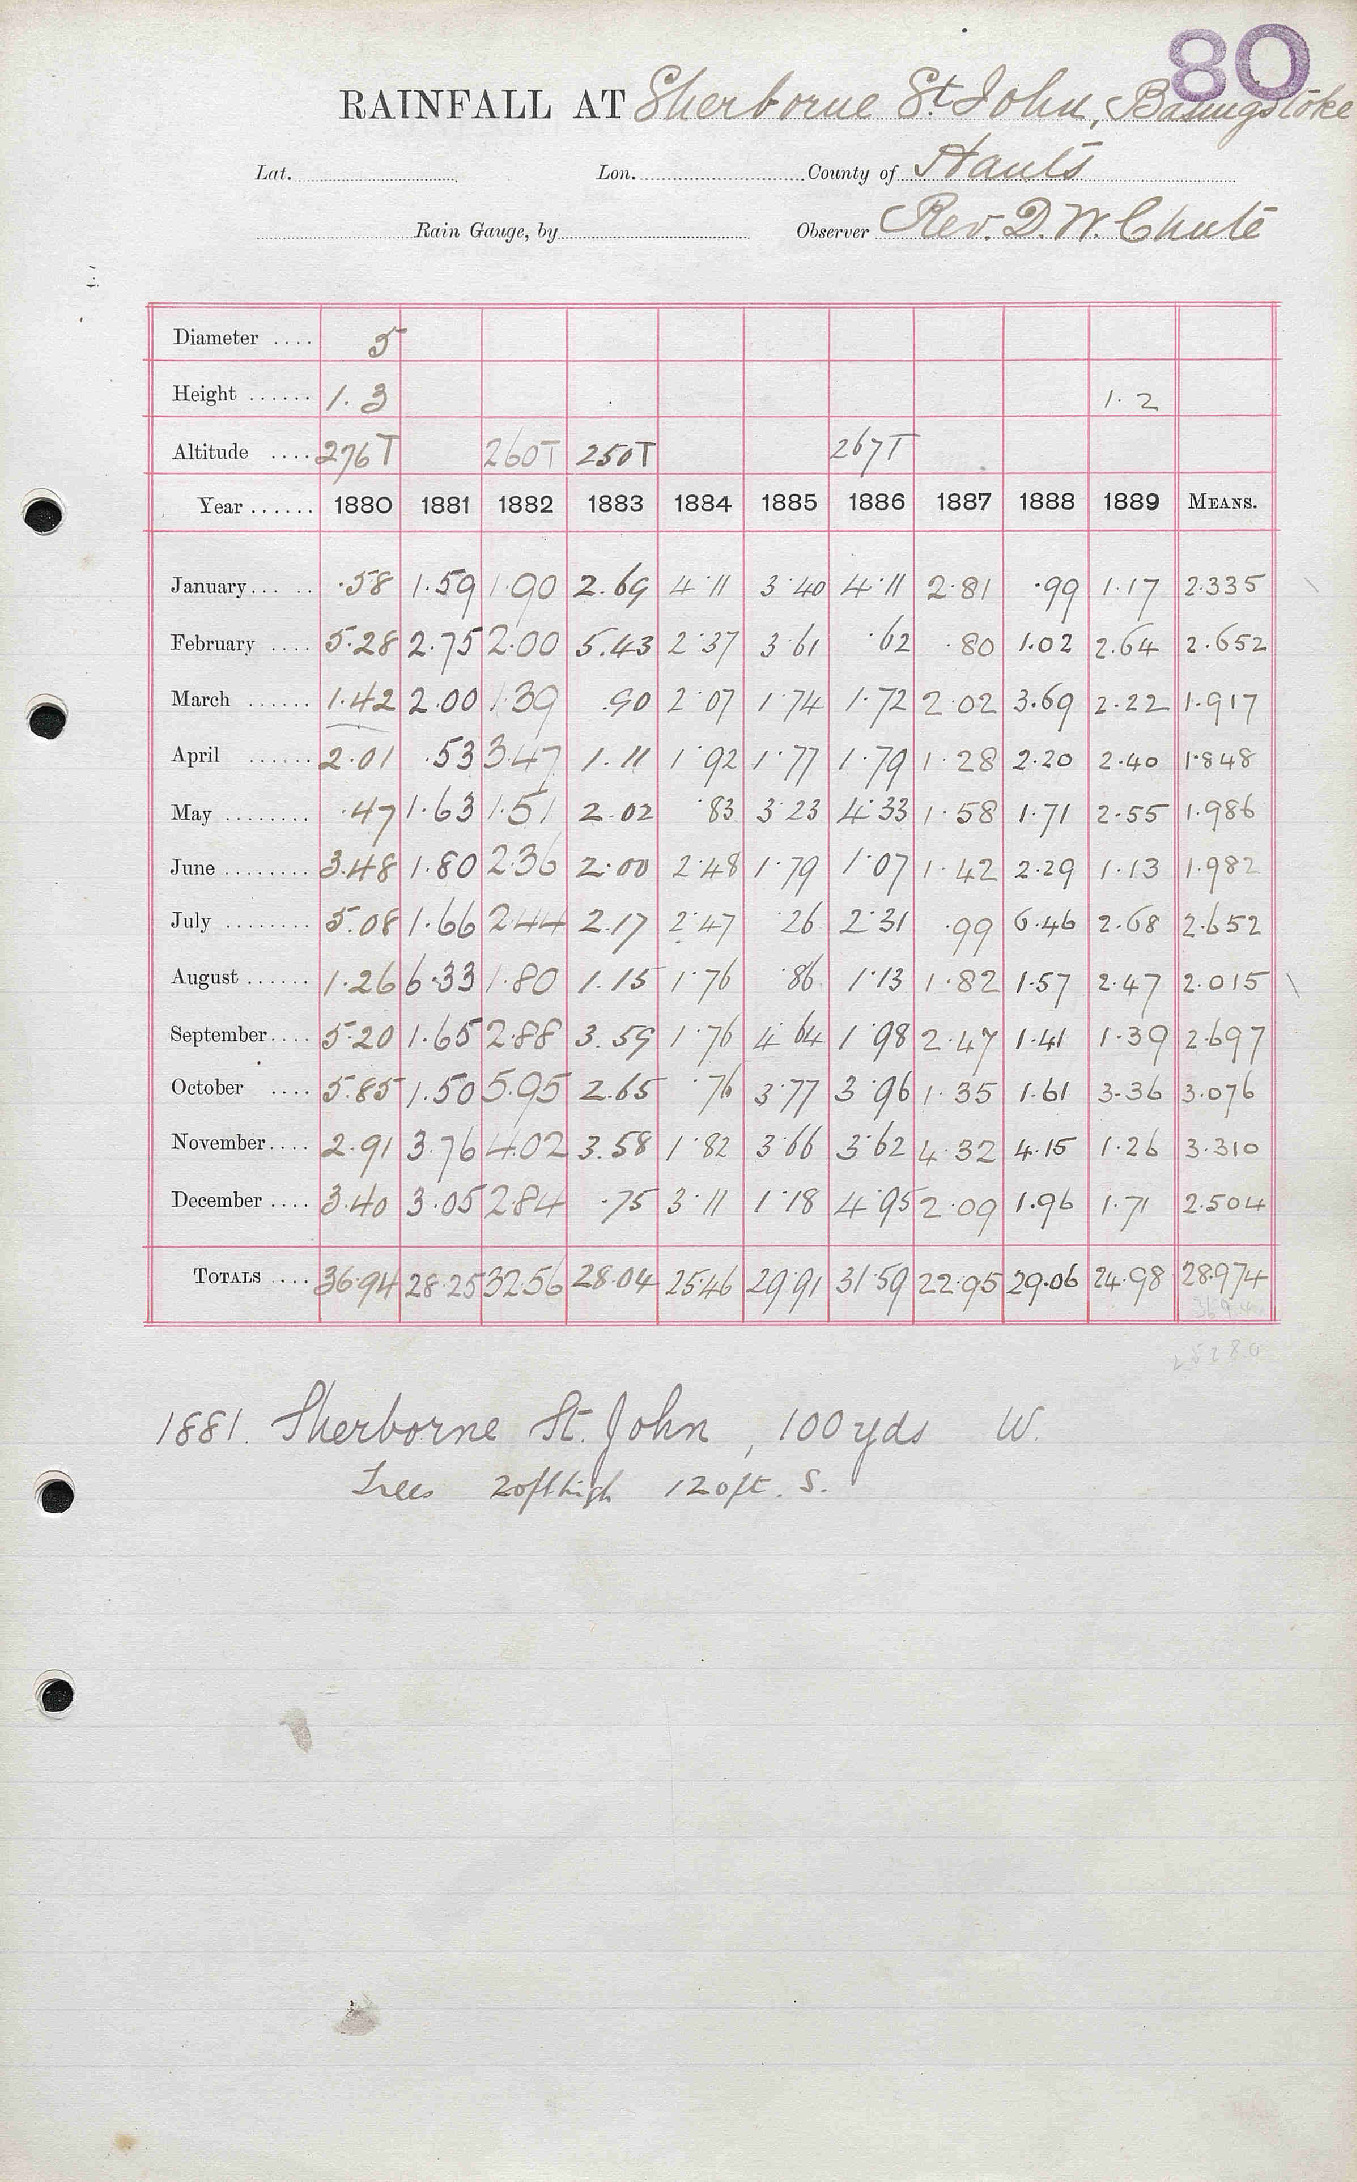 80
RAINFALL AT Sherborne St. John, Basingstoke
Lat. Lon. County of Hants
Rain Gauge, by Observer Rev. D. W. Chute
Diameter .... 5
Height ...... 1.3 1.2
Altitude .... 276T 260T 250T 267T
Year ...... 1880 1881 1882 1883 1884 1885 1886 1887 1888 1889 MEANS.
January... .. .58 1.59 1.90 2.69 4.11 3.40 4.11 2.81 .99 1.17 2.335
February .... 5.28 2.75 2.00 5.43 2.37 3.61 .62 .80 1.02 2.64 2.652
March ...... 1.42 2.00 1.39 .90 2.07 1.74 1.72 2.02 3.69 2.22 1.917
April ...... 2.01 .53 3.47 1.11 1.92 1.77 1.79 1.28 2.20 2.40 1.848
May ........ .47 1.63 1.51 2.02 .83 3.23 4.33 1.58 1.71 2.55 1.986
June ........ 3.48 1.80 2.36 2.00 2.48 1.79 1.07 1.42 2.29 1.13 1.982
July ........ 5.08 1.66 2.44 2.17 2.47 .26 2.31 .99 6.46 2.68 2.652
August ...... 1.26 6.33 1.80 1.15 1.76 .86 1.13 1.82 1.57 2.47 2.015
September.... 5.20 1.65 2.88 3.59 1.76 4.64 1.98 2.47 1.41 1.39 2.697
October .... 5.85 1.50 5.95 2.65 .76 3.77 3.96 1.35 1.61 3.36 3.076
November.... 2.91 3.76 4.02 3.58 1.82 3.66 3.62 4.32 4.15 1.26 3.310
December .... 3.40 3.05 2.84 .75 3.11 1.18 4.95 2.09 1.96 1.71 2.504
TOTALS .... 36.94 28.25 32.56 28.04 25.46 29.91 31.59 22.95 29.06 24.98 28.974
1881. Sherborne St. John, 100 yds W.
Trees 20ft high 120ft. S.